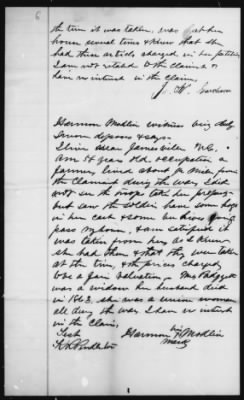 6
the time it was taken, was at her
house several times & knew that she
had these articles charged in her petition
I am not related to the claimant &
have no interest in the claim.
J. H.
Harmon Modlin witness being duly
Sworn deposes & says:
I live near Jamesville N.C.
Am 58 years old, occupation a
farmer, lived about miles from
the Claimant during the war, I did
not see the troops take her property
but saw the soldiers have some hogs
in her cart & some on going
pass my house, & am satisfied it
was taken from her, as I knew
she had them & that they were taken
at the time, & the prices charged
to be a fair valuation, Mrs
was a widow her husband died
in 1863. she was a union woman
all during the war. I have no interest
in the claim,
Test Harmon his Modlin
mark